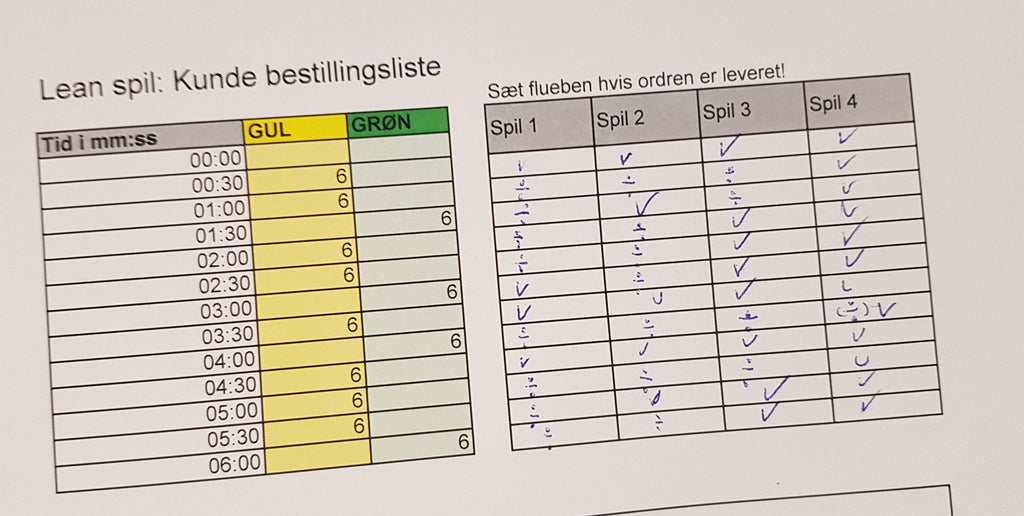 Lean spil: Kunde bestillingsliste
Tid i mm:ss GUL GRØN
00:00
00:30 6
01:00 6
01:30 6
02:00 6
02:30 6
03:00 6
03:30 6
04:00 6
04:30 6
05:00 6
05:30 6
06:00 6
Sæt flueben hvis ordren er leveret!
Spil 1 Spil 2 Spil 3 Spil 4